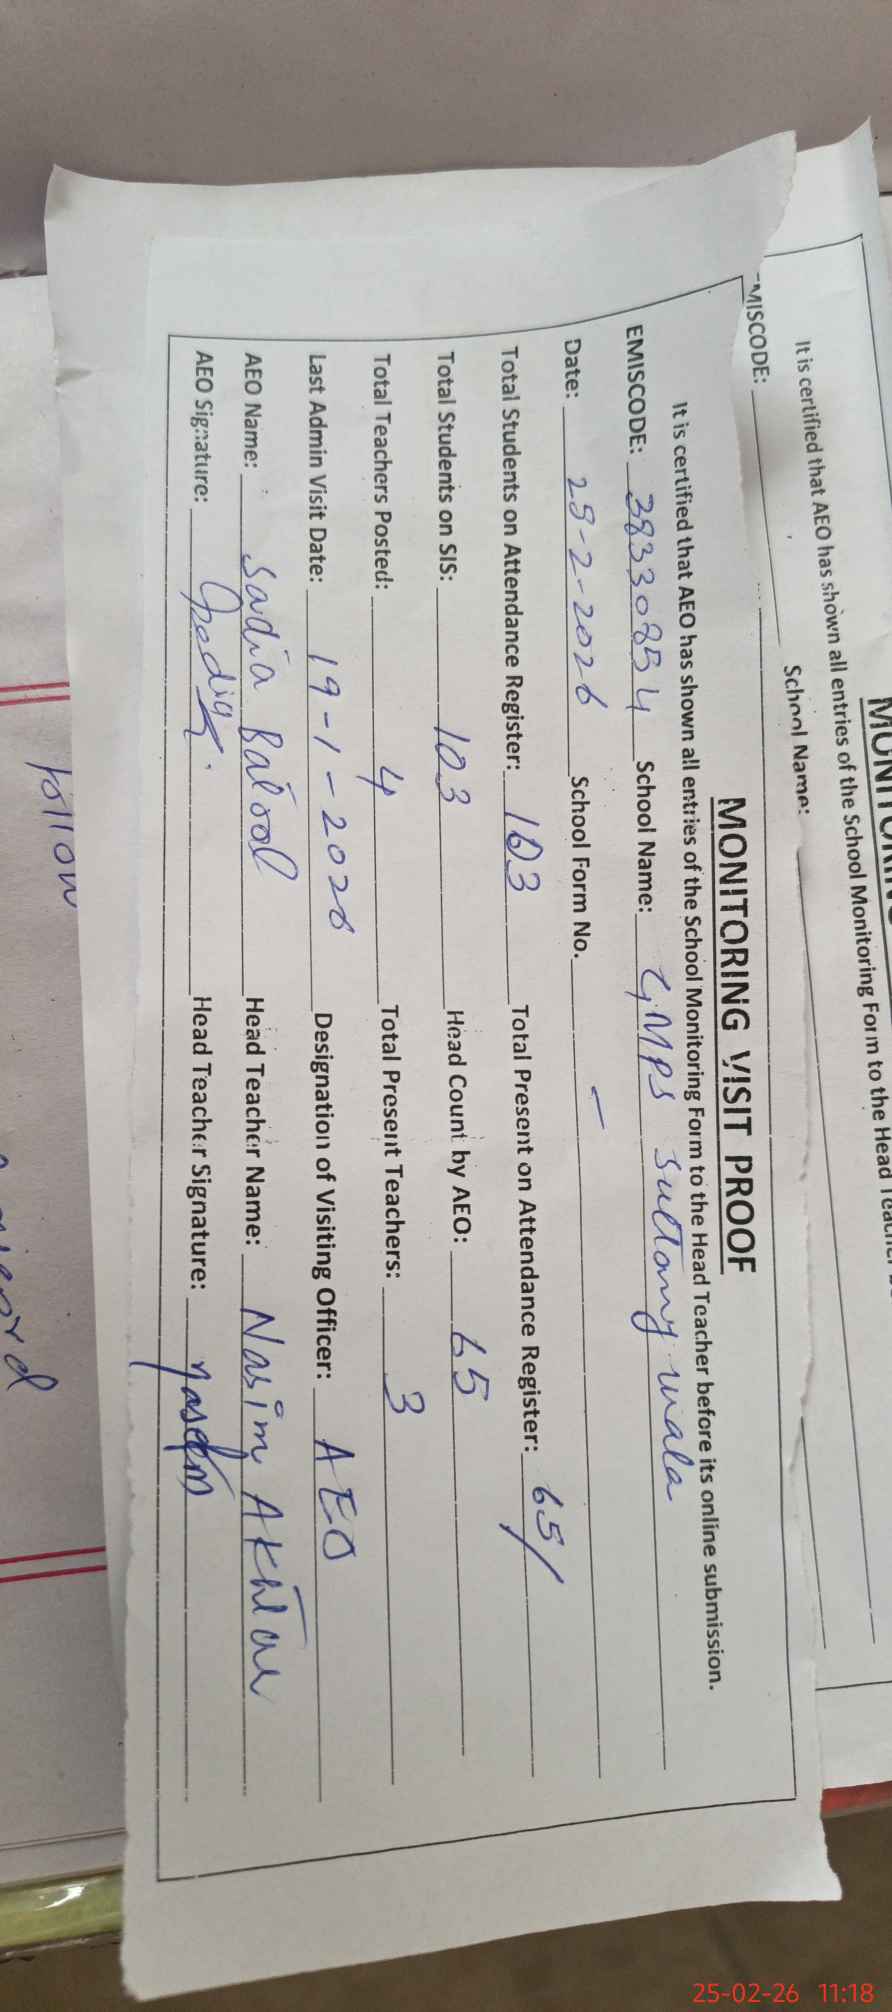 MONITORING
It is certified that AEO has shown all entries of the School Monitoring Form to the Head Teacher
MISCODE: School Name:
MONITORING VISIT PROOF
It is certified that AEO has shown all entries of the School Monitoring Form to the Head Teacher before its online submission.
EMISCODE: 38330854 School Name: GMPS Sultany wala
Date: 25-2-2026 School Form No. -
Total Students on Attendance Register: 103 Total Present on Attendance Register: 65/
Total Students on SIS: 103 Head Count by AEO: 65
Total Teachers Posted: 4 Total Present Teachers: 3
Last Admin Visit Date: 19-1-2026 Designation of Visiting Officer: AEO
AEO Name: Sadia Batool Head Teacher Name: Nasim Akhtar
AEO Signature: Sadia Head Teacher Signature: Naseem
follow
25-02-26 11:18